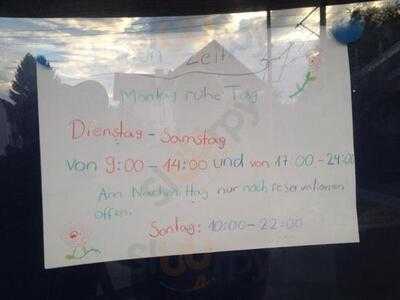 Zeit
Montag ruhe Tag
Dienstag - Samstag
von 9:00 - 14:00 und von 17 00 - 24:00
Am Nachmittag nur nach reservationen
offen.
Sontag: 10:00 - 22:00